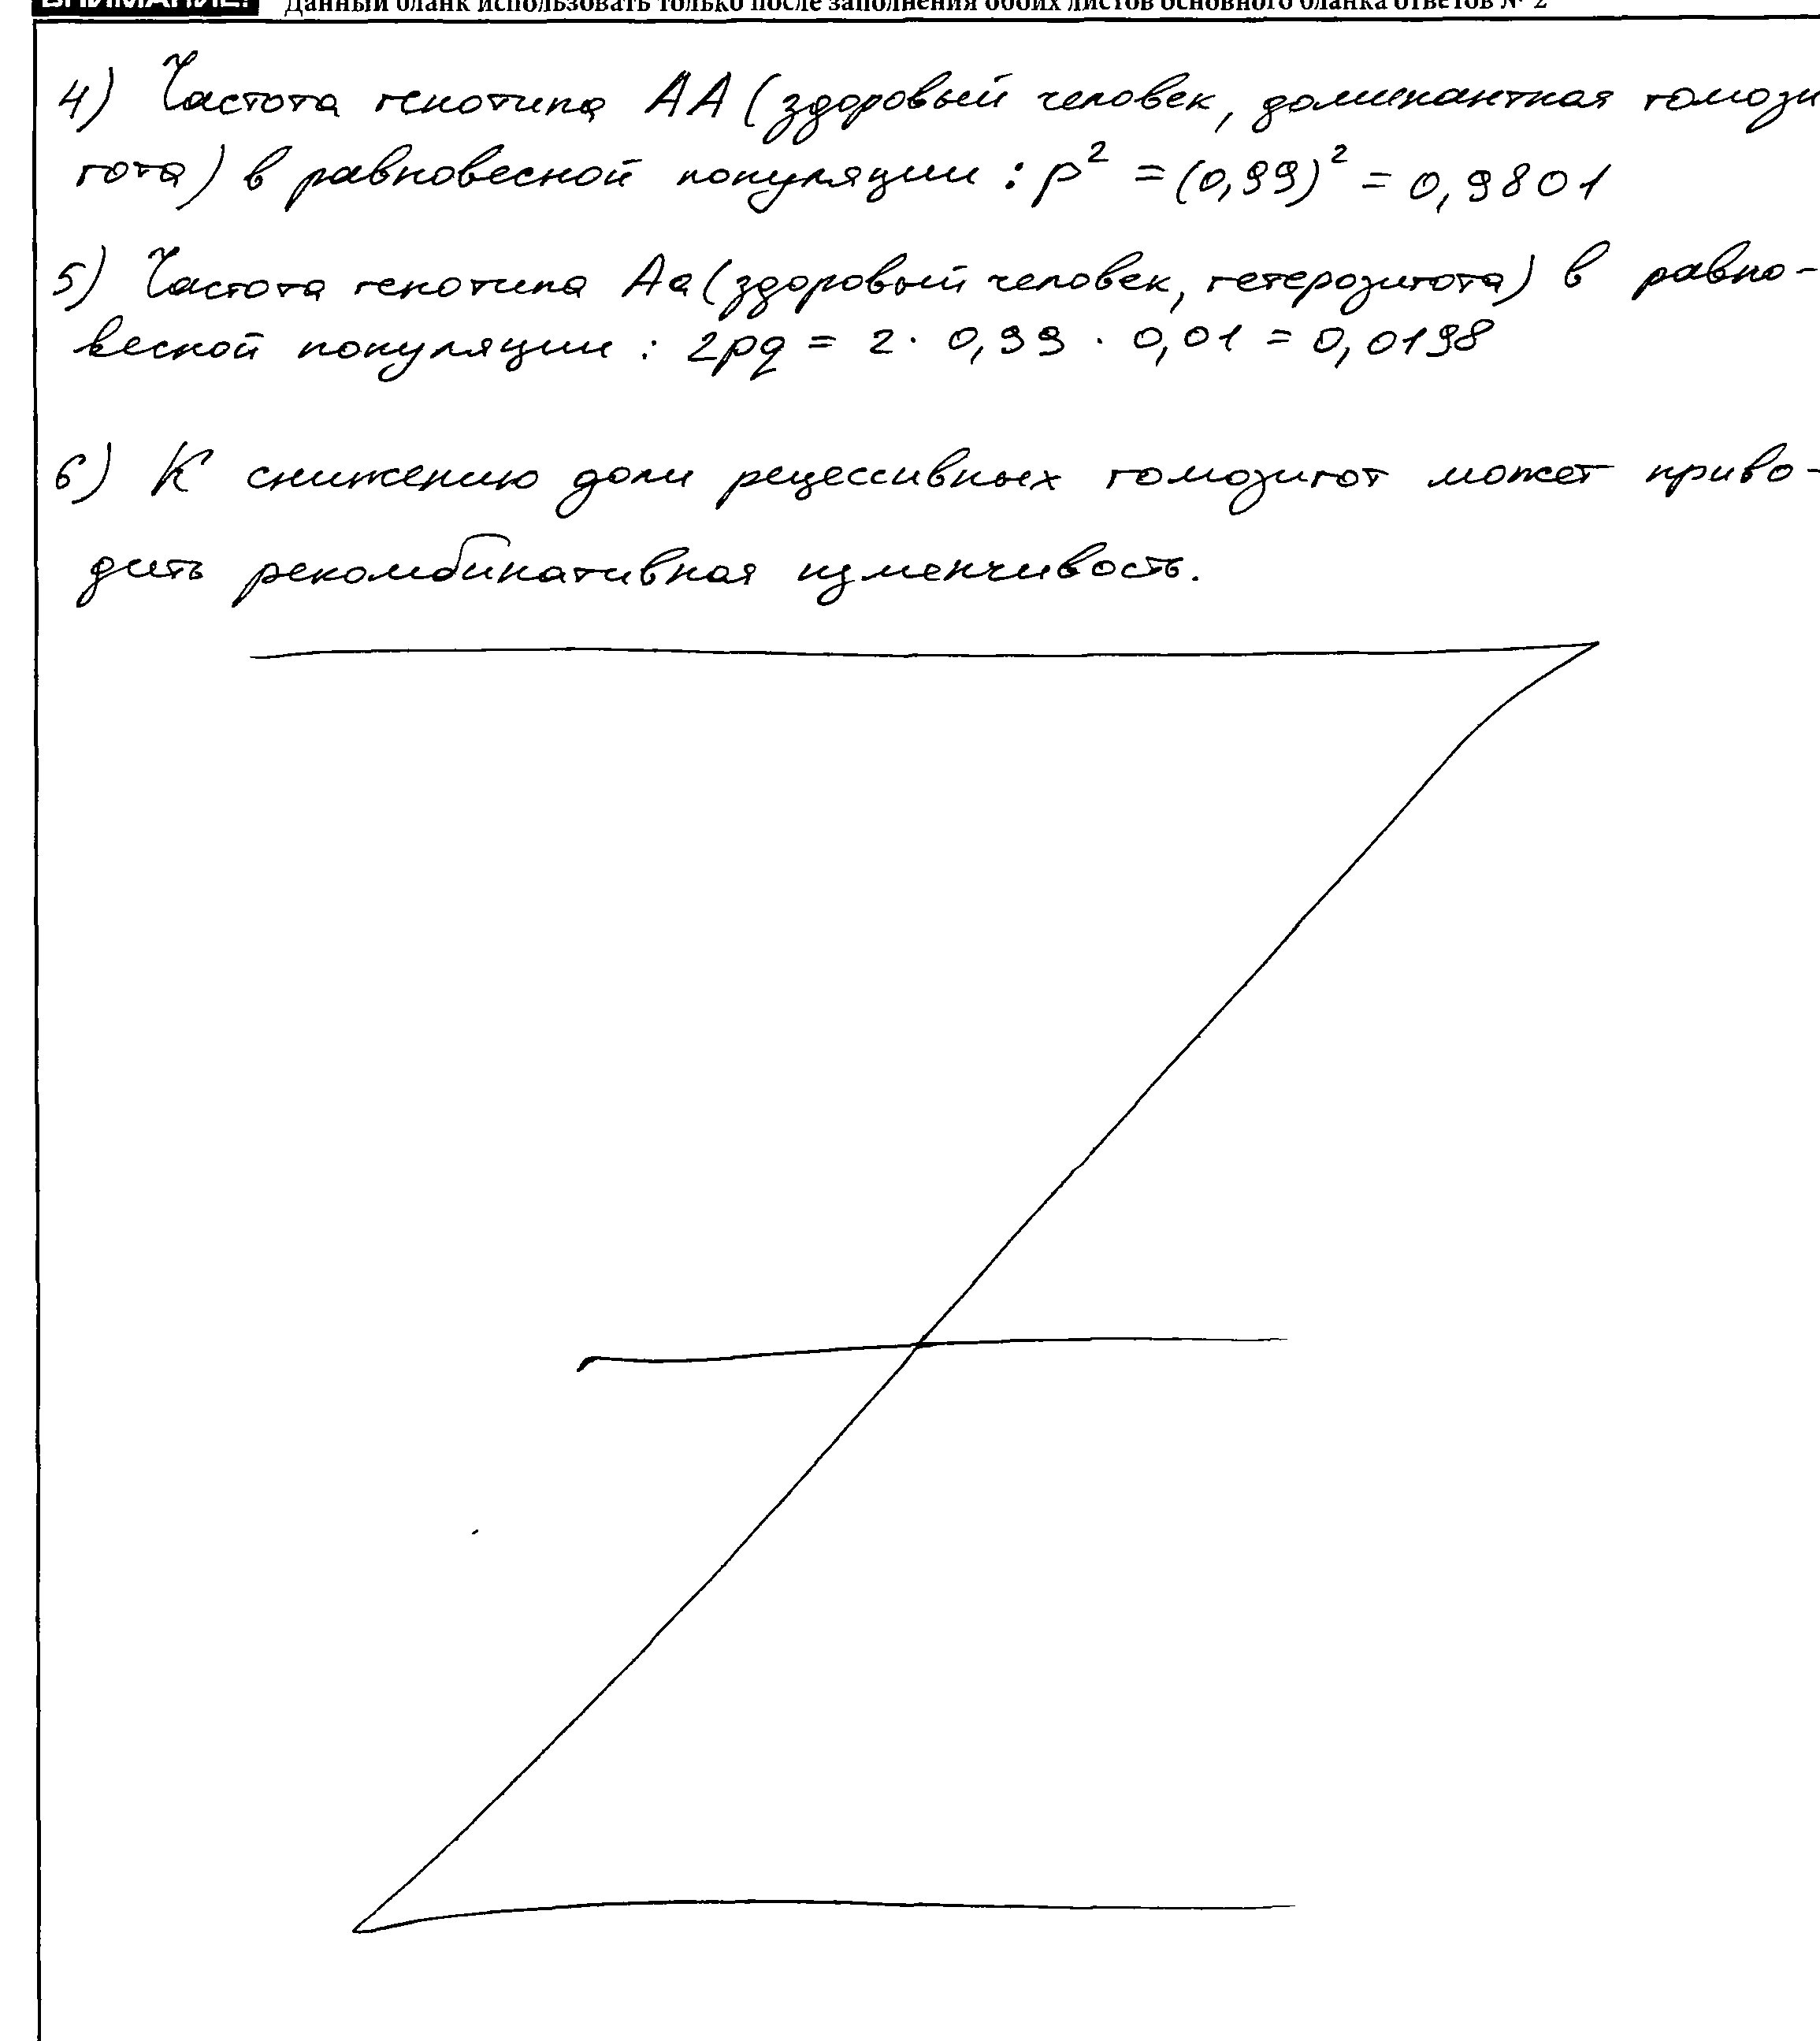 ВНИМАНИЕ! Данный бланк использовать только после заполнения обоих листов основного бланка ответов № 2
4) Частота генотипа АА (здоровый человек, доминантная гомози
гота) в равновесной популяции : p² = (0,99)² = 0,9801
5) Частота генотипа Аа (здоровый человек, гетерозигота) в равно-
весной популяции : 2pq = 2 · 0,99 · 0,01 = 0,0198
6) К снижению доли рецессивных гомозигот может приво-
дить рекомбинативная изменчивость.